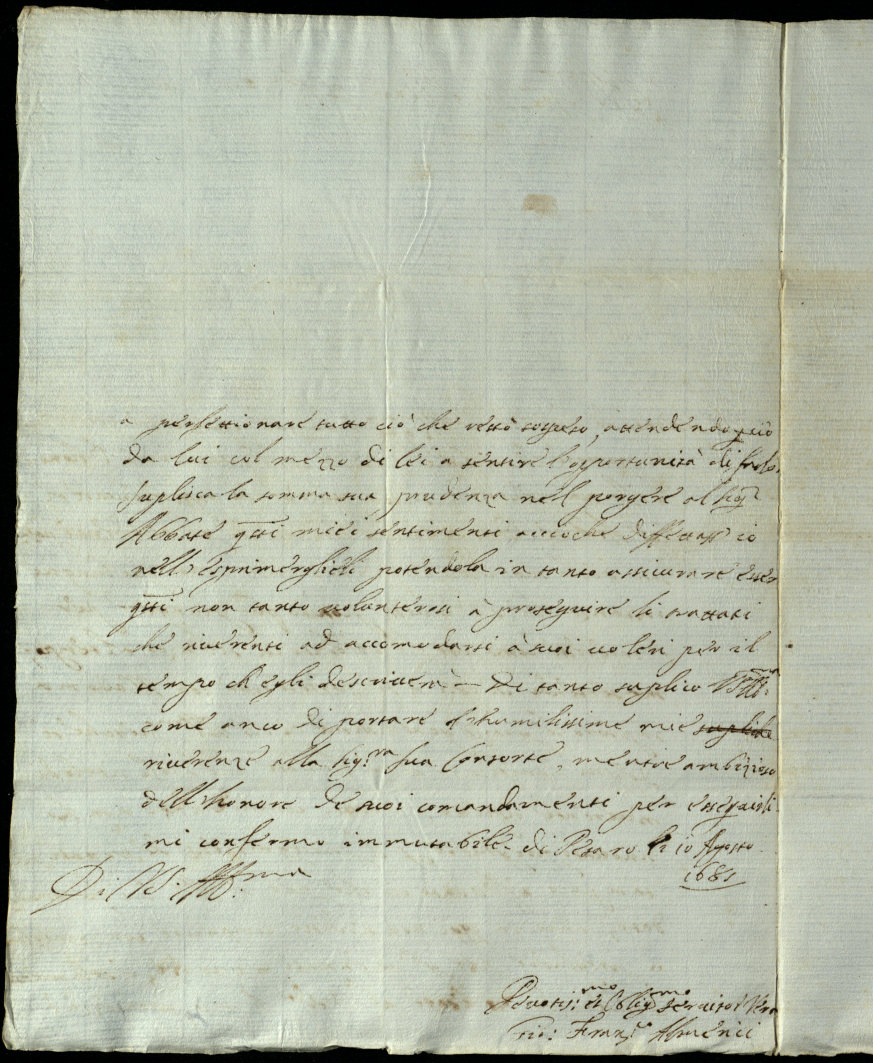 a perfettionare tutto ciò che restò sospeso, attendendo perciò
da lui col mezzo di lei a sentire l'opportunità di farlo.
Suplisca la somma sua prudenza nel porgere al Sigr
Abbate questi miei sentimenti accioche io
nell'esprimerglieli potendola in tanto assicurare esser
questi non tanto volunterosi à proseguire li trattati
che riverenti ad accomodarsi à suoi voleri per il
tempo ch'egli descriverà — Di tanto suplico V.S. Illma
come anco di portare l'humilissime mie
riverenze alla Sig.ra sua Consorte, mentre ambizioso
dell'honore de suoi comandamenti per esseguirli
mi confermo immutabile. di Pesaro li 10 Agosto
1681
Di V.S. Illma
Devotis:mo et Oblig:mo servitor vero
Gio: Franco Almerici